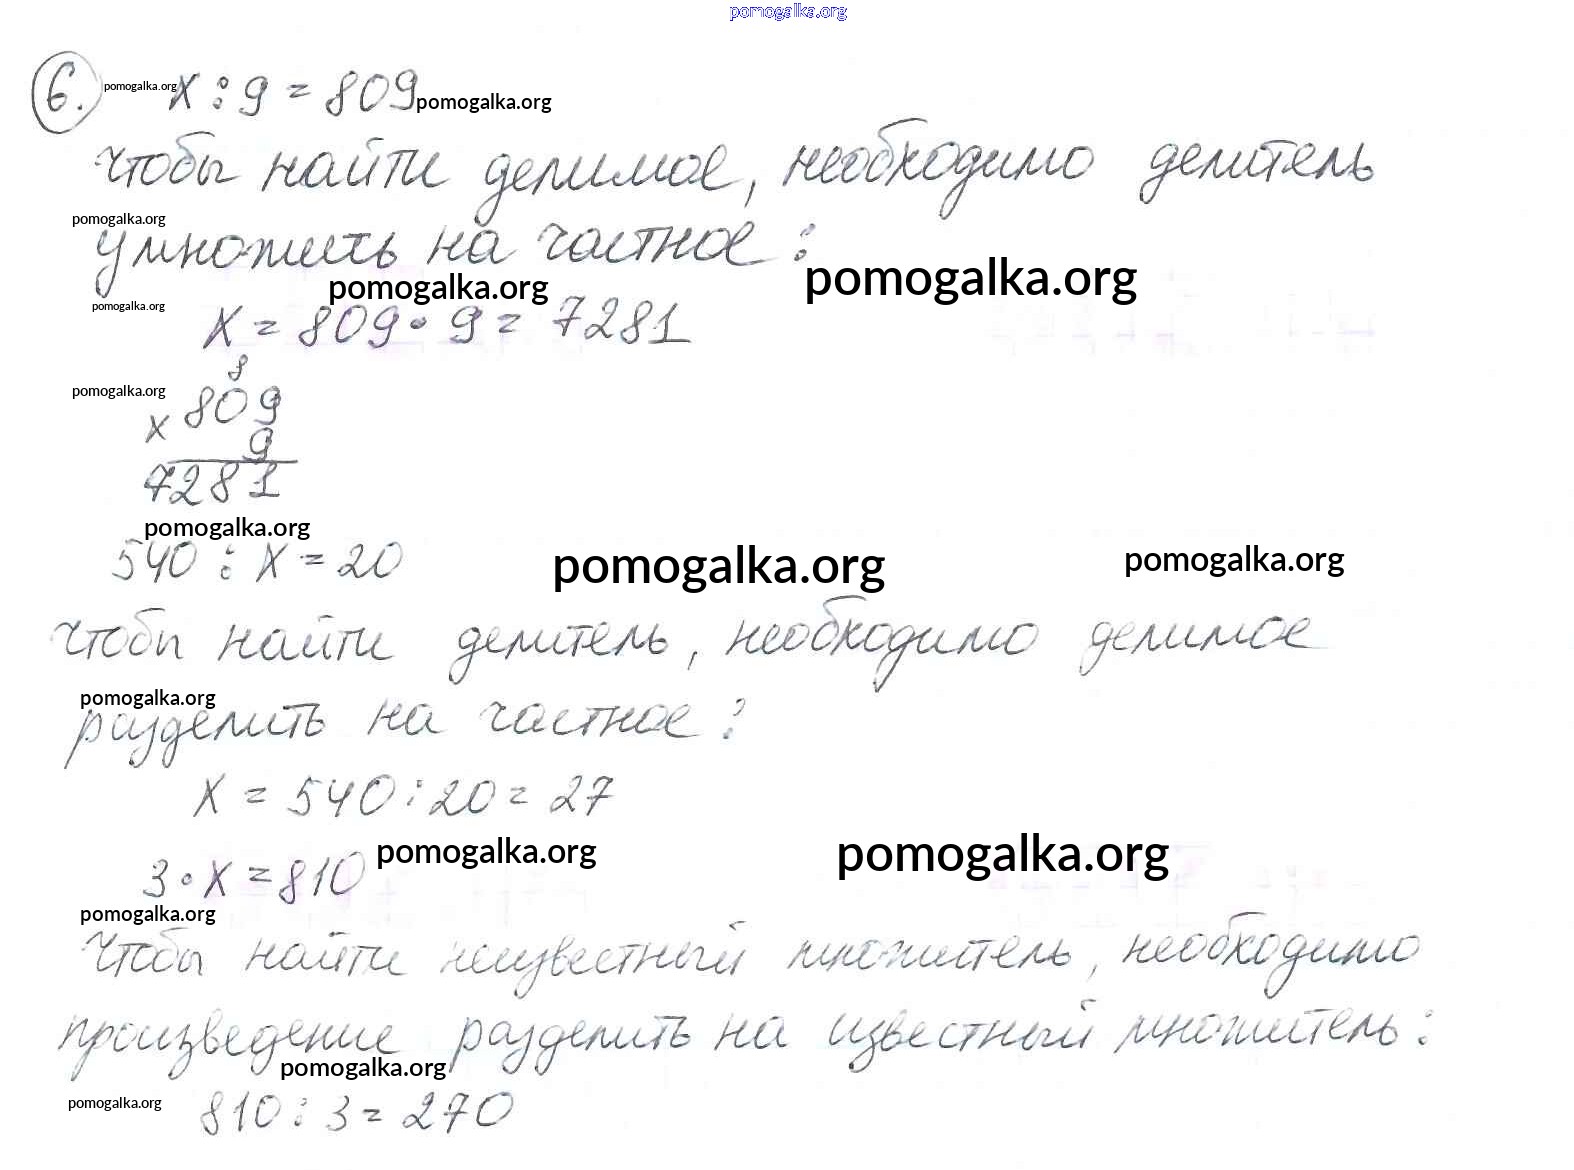 pomogalka.org
6. pomogalka.org x : 9 = 809 pomogalka.org
Чтобы найти делимое, необходимо делитель
pomogalka.org
умножить на частное :
pomogalka.org pomogalka.org
pomogalka.org
x = 809 • 9 = 7281
8
pomogalka.org
x 809
9
7281
pomogalka.org
540 : x = 20 pomogalka.org pomogalka.org
Чтобы найти делитель, необходимо делимое
pomogalka.org
разделить на частное :
x = 540 : 20 = 27
3 • x = 810 pomogalka.org pomogalka.org
pomogalka.org
Чтобы найти неизвестный множитель, необходимо
произведение разделить на известный множитель :
pomogalka.org
pomogalka.org 810 : 3 = 270